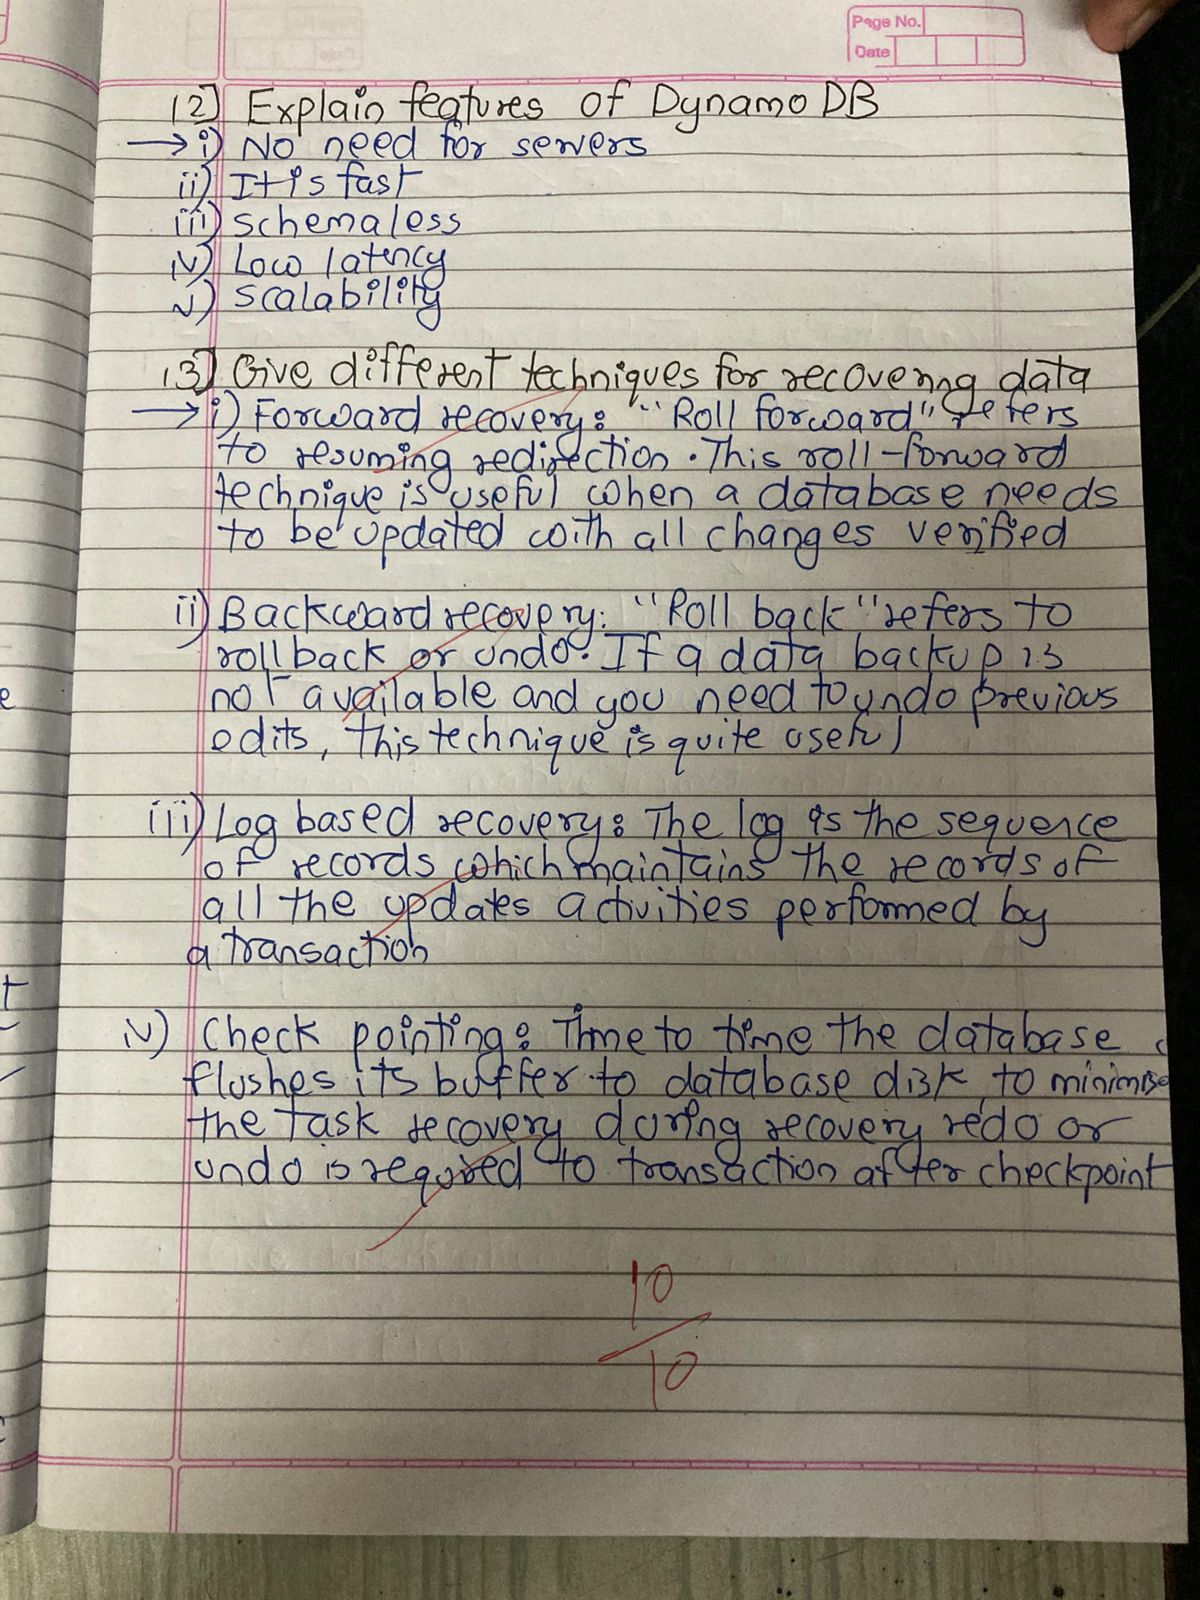 Page No.
Date
12] Explain features of Dynamo DB
→ i) No need for servers
ii) It is fast
iii) schemaless
iv) Low latency
v) scalability
13] Give different techniques for recovering data
→ i) Forward recovery: "Roll forward" refers
to resuming redirection. This roll-forward
technique is useful when a database needs
to be updated with all changes verified
ii) Backward recovery: "Roll back" refers to
rollback or undo. If a data backup is
not available and you need to undo previous
edits, this technique is quite useful
iii) Log based recovery: The log is the sequence
of records which maintains the records of
all the updates activities performed by
a transaction
iv) Check pointing: Time to time the database
flushes its buffer to database disk, to minimise
the task recovery during recovery redo or
undo is required to transaction after checkpoint
10
10